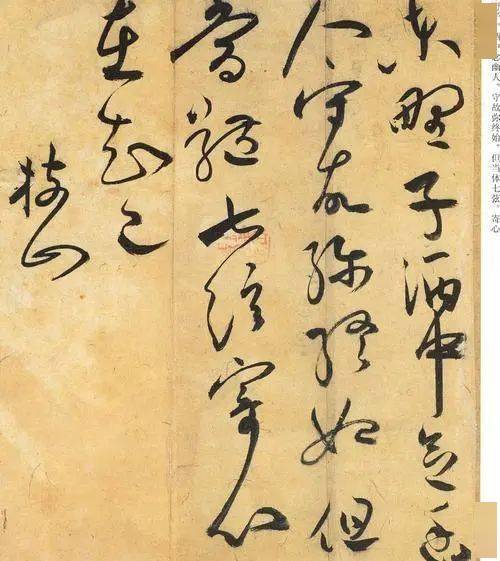 幽人。守故弥终始。但当体七弦。寄心
東野子酒中念幽
人守故彌終始但
當體七絃寄心
在知己
枝山